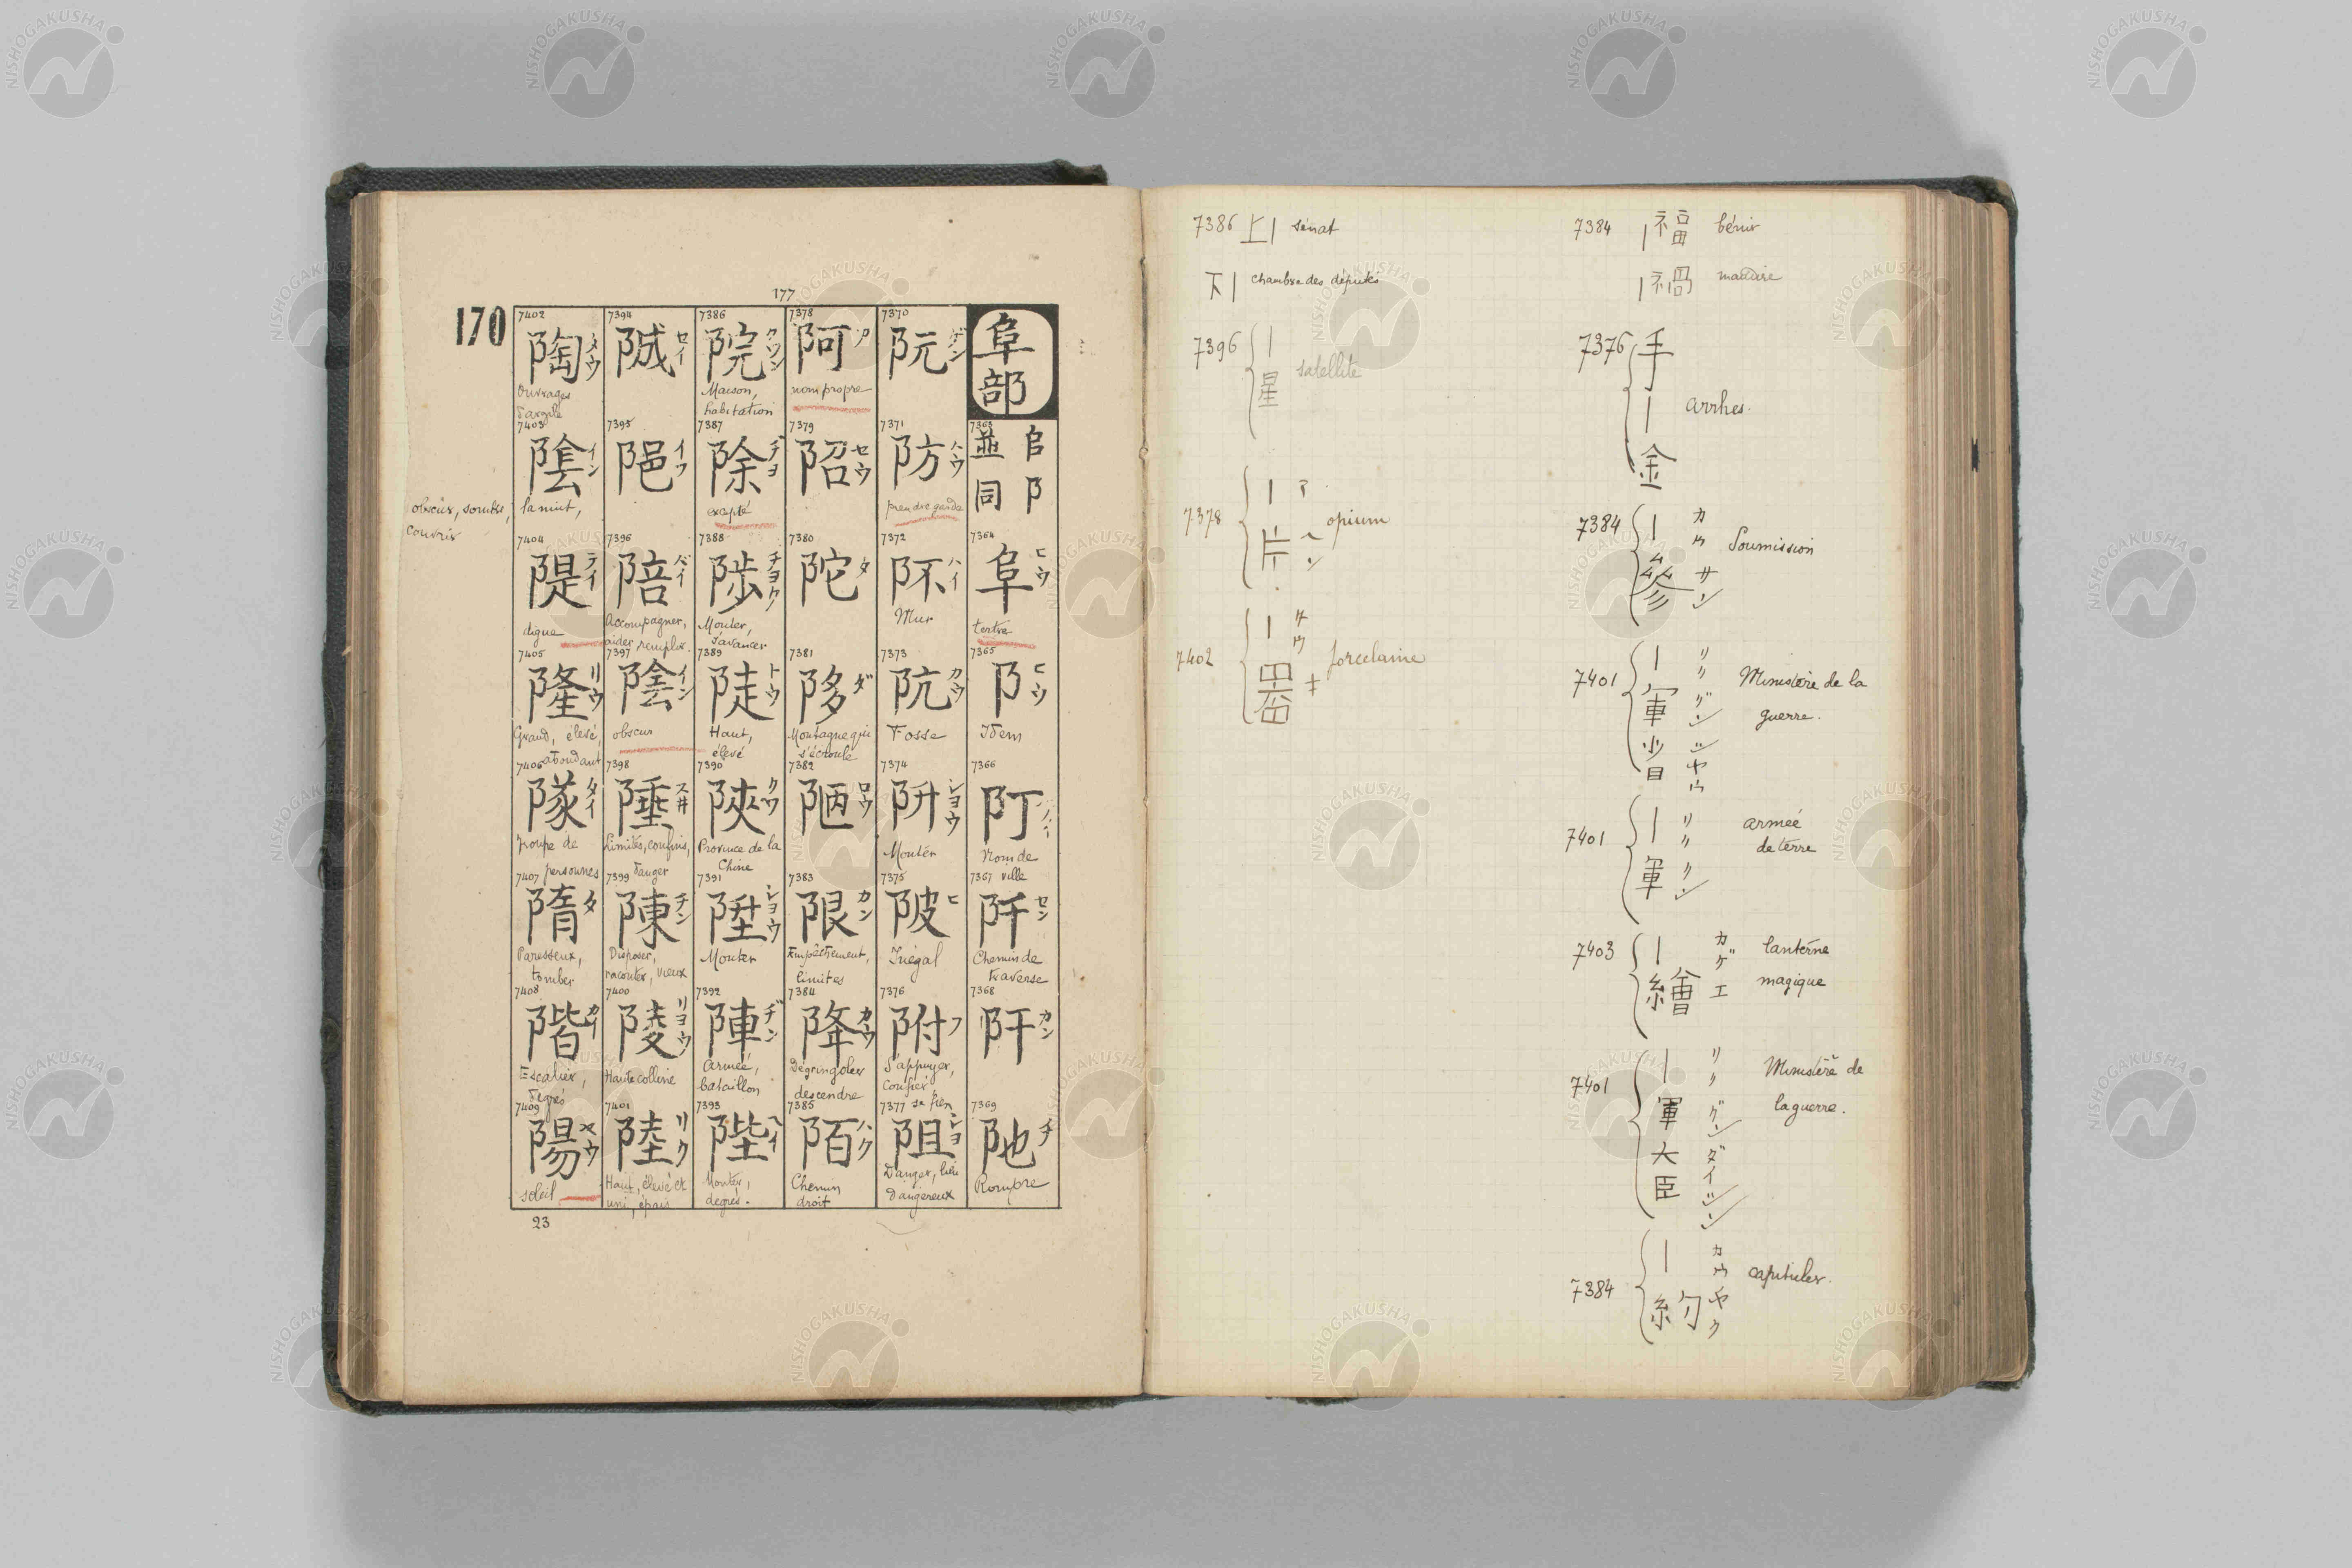 177
170
阜部
7363
𨸏 阝
並同
7364
阜 ヒウ
tertre
7365
阝 ヒウ
Idem
7366
阾
Nom de
ville
7367
阡 セン
Chemin de
traverse
7368
阡 カン
7369
阤 チ
Rompre
7370
阮 ゲン
7371
防 ハウ
prendre garde
7372
阫 ハイ
Mur
7373
阬 カウ
Fosse
7374
阩 シヨウ
Monter
7375
陂 ヒ
Inégal
7376
附 フ
S'appuyer,
confier,
se fier
7377
阻 シヨ
Danger, lieu
dangereux
7378
阿 ア
nom propre
7379
阾 セウ
7380
陀 タ
7381
陊 ダ
Montagne qui
s'écroule
7382
陋 ロウ
7383
限 カン
Empêchement,
limites
7384
降 カウ
Dégringoler
descendre
7385
陌 ハク
Chemin
droit
7386
院 クワン
Maison,
habitation
7387
除 ヂヨ
excepté
7388
陟 チヨク
Monter,
s'avancer
7389
陡 トウ
Haut,
élevé
7390
陝
Province de la
Chine
7391
陞 シヨウ
Monter
7392
陣 ヂン
Armée,
bataillon
7393
陛 ヘイ
Monter,
degrés.
7394
郕 セイ
7395
7396
陪 バイ
Accompagner,
aider, remplir.
7397
陰 イン
obscur
7398
陲 スヰ
Limites, confins,
danger
7399
陳 チン
Disposer,
raconter, vieux
7400
陵 リヨウ
Haute colline
7401
陸 リク
Haut, élevé et
uni, épris
7402
陶 タウ
Ouvrages
d'argile
7403
隂 イン
la nuit,
obscur, sombre,
couvrir
7404
隄 テイ
digue
7405
隆 リウ
Grand, élevé,
abondant
7406
隊 タイ
Troupe de
personnes
7407
隋 タ
Paresseux,
tomber
7408
階 カイ
Escalier,
degrés
7409
陽 ヤウ
soleil
23
7386 上| sénat
下| chambre des députés
7396 |星 satellite
7378 |片 ア ヘン opium
7402 |器 porcelaine
7384 |福 bénir
|禍 maudire
7376 手|金 arrhes.
7384 |參 カウ サン Soumission
7401 |軍省 リク グン シヤウ Ministère de la
guerre.
7401 |軍 armée
de terre
7403 |繪 カゲ エ lanterne
magique
7401 |軍大臣 リク グン ダイ ジン Ministère de
la guerre.
7384 |約 カウ ヤク capituler.